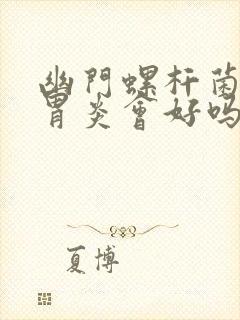 幽門螺杆菌
胃炎會好嗎
夏博